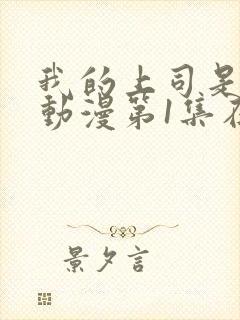 我的上司是
動漫第1集在
景夕言